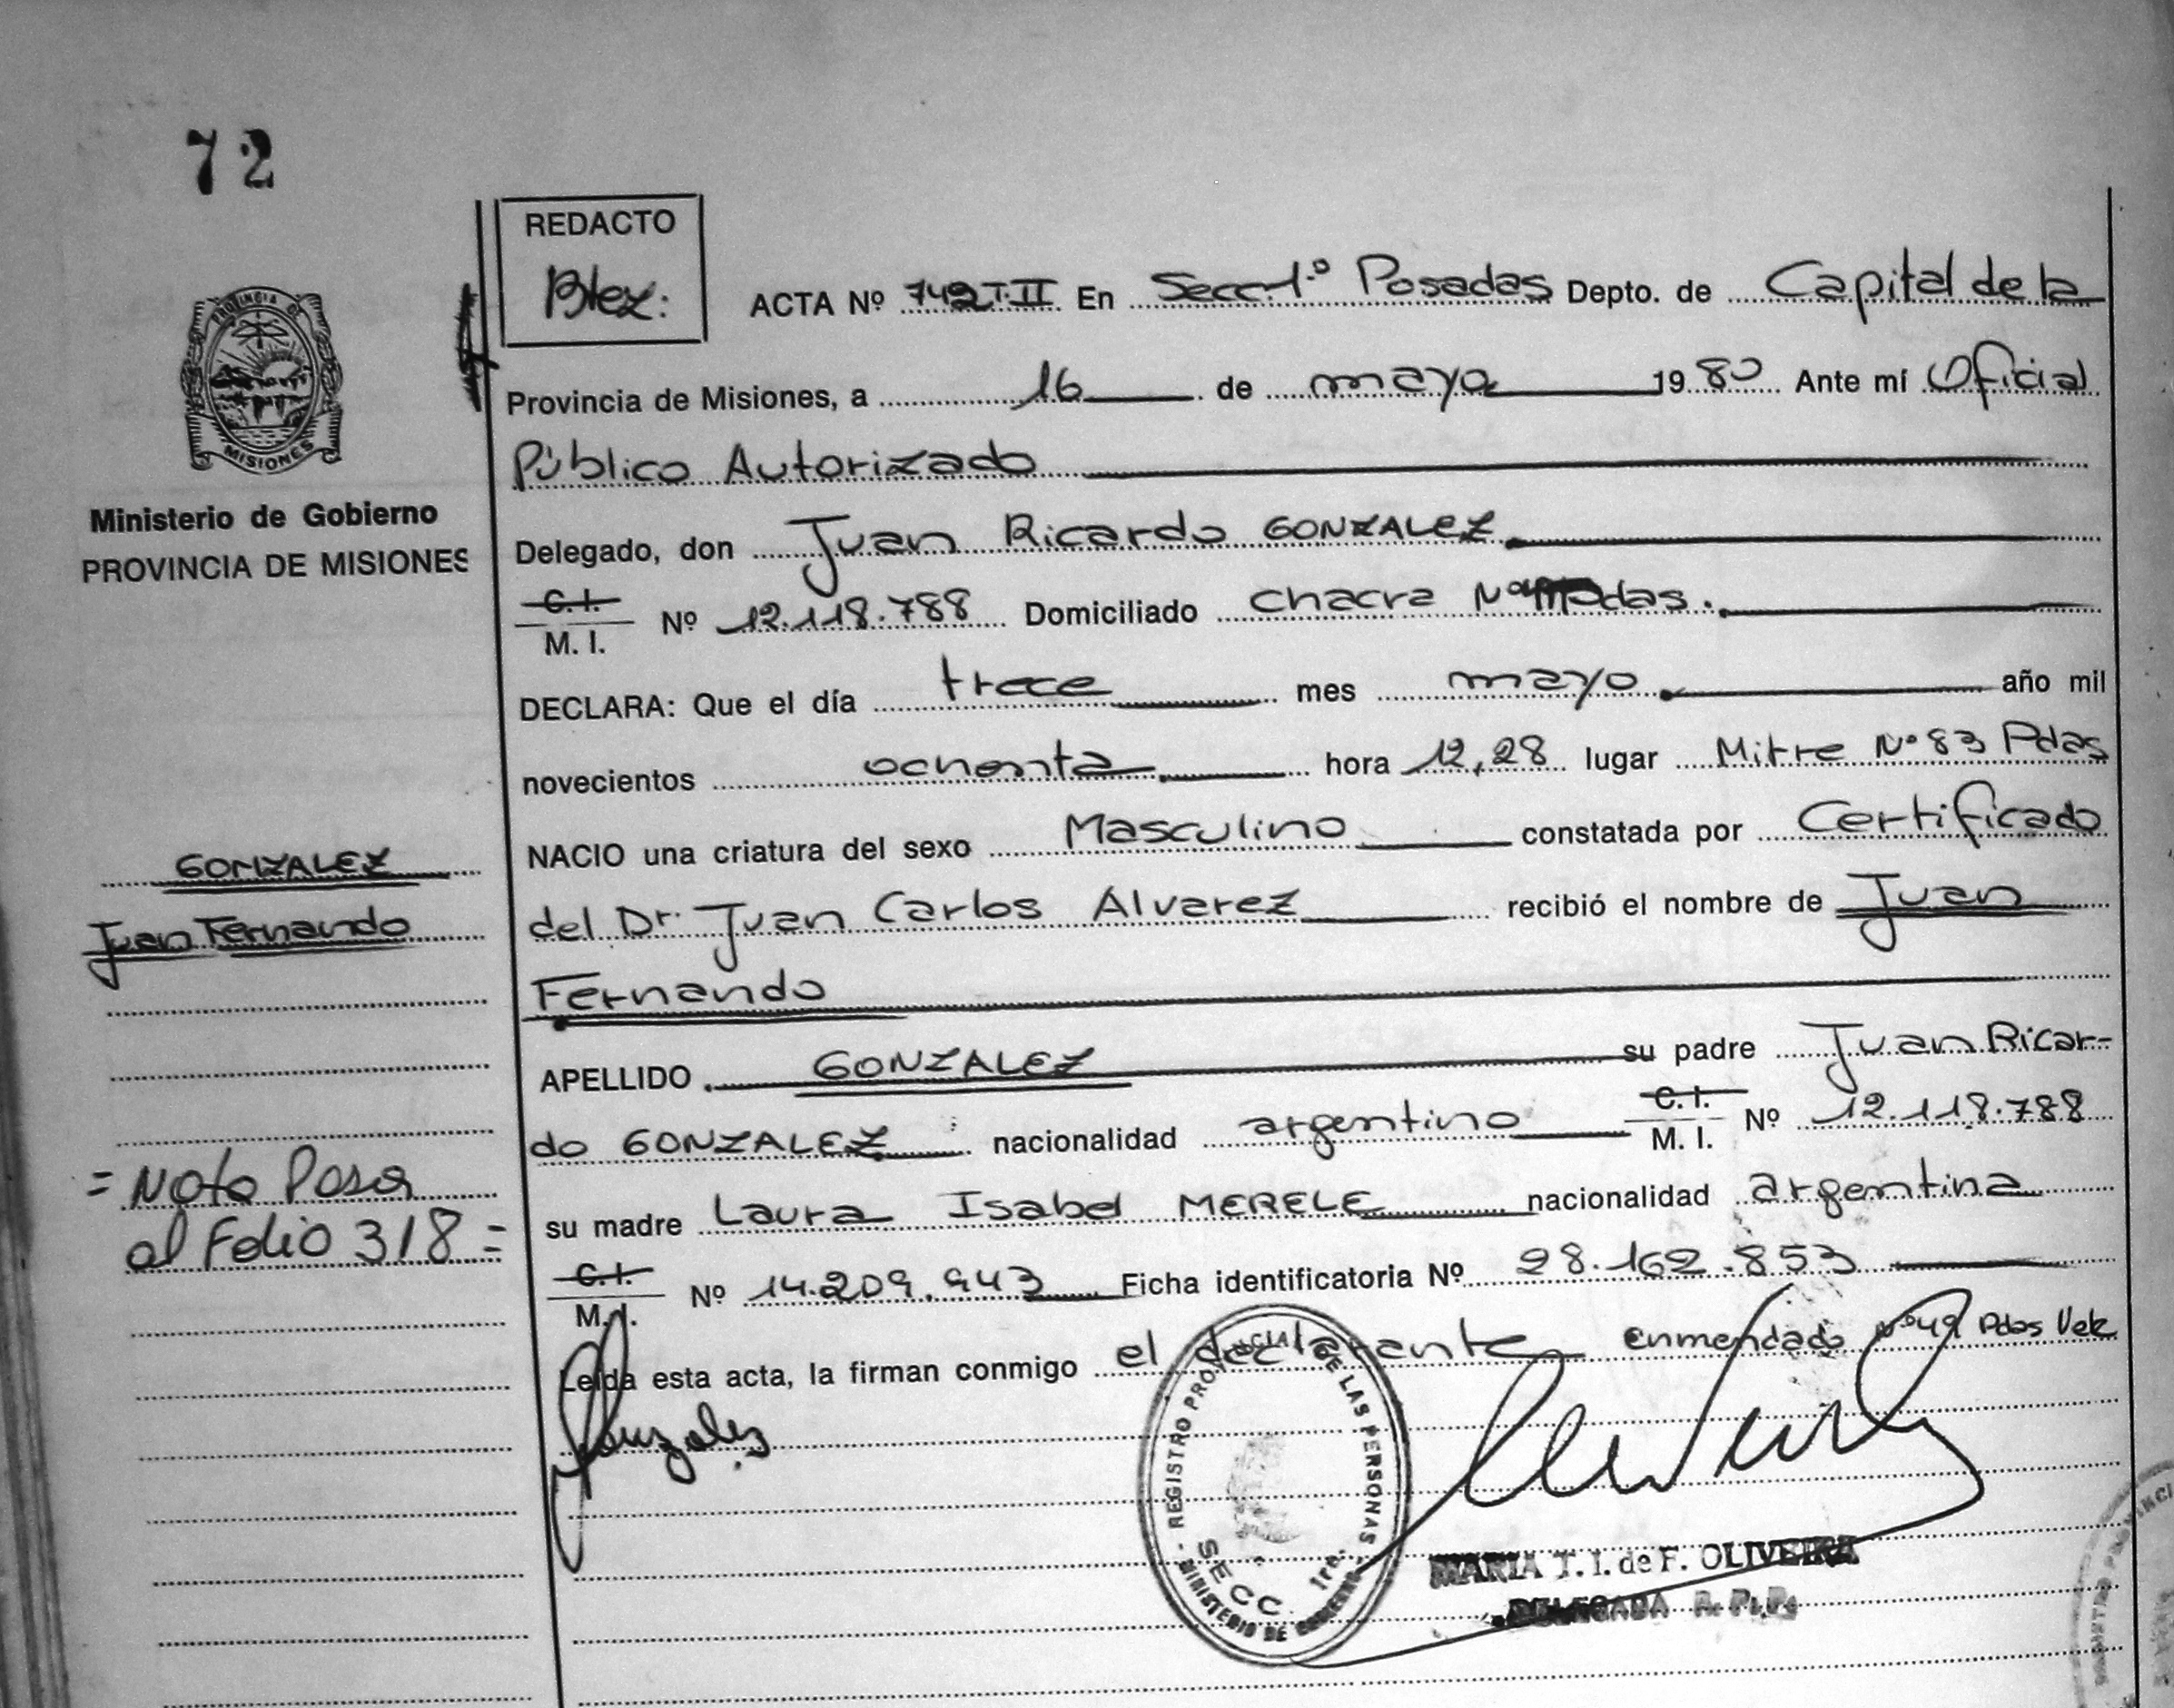 72
REDACTO
Btez:
ACTA Nº 742 T.II En Secc. 1º Posadas Depto. de Capital de la
Provincia de Misiones, a 16 de mayo 1980 Ante mí Oficial
Público Autorizado
Delegado, don Juan Ricardo GONZALEZ
C.I.
M. I. Nº 12.118.788 Domiciliado chacra Nº das.
DECLARA: Que el día trece mes mayo año mil
novecientos ochenta hora 12,28 lugar Mitre Nº 83 Pdas
NACIO una criatura del sexo Masculino constatada por Certificado
del Dr. Juan Carlos Alvarez recibió el nombre de Juan
Fernando
APELLIDO GONZALEZ su padre Juan Ricar-
do GONZALEZ nacionalidad argentino C. I. M. I. Nº 12.118.788
su madre Laura Isabel MERELE nacionalidad argentina
C.I.
M.I. Nº 14.209.943 Ficha identificatoria Nº 28.162.853
Leída esta acta, la firman conmigo el declarante enmendado Nº 49 Pdas Vale
Gonzalez
REGISTRO PROVINCIAL DE LAS PERSONAS
SECC. 1ra.
MINISTERIO DE GOBIERNO
MARIA T. I. de F. OLIVEIRA
DELEGADA R. P. P.
PROVINCIA DE
MISIONES
Ministerio de Gobierno
PROVINCIA DE MISIONES
GONZALEZ
Juan Fernando
= Nota Pasa
al Folio 318 =